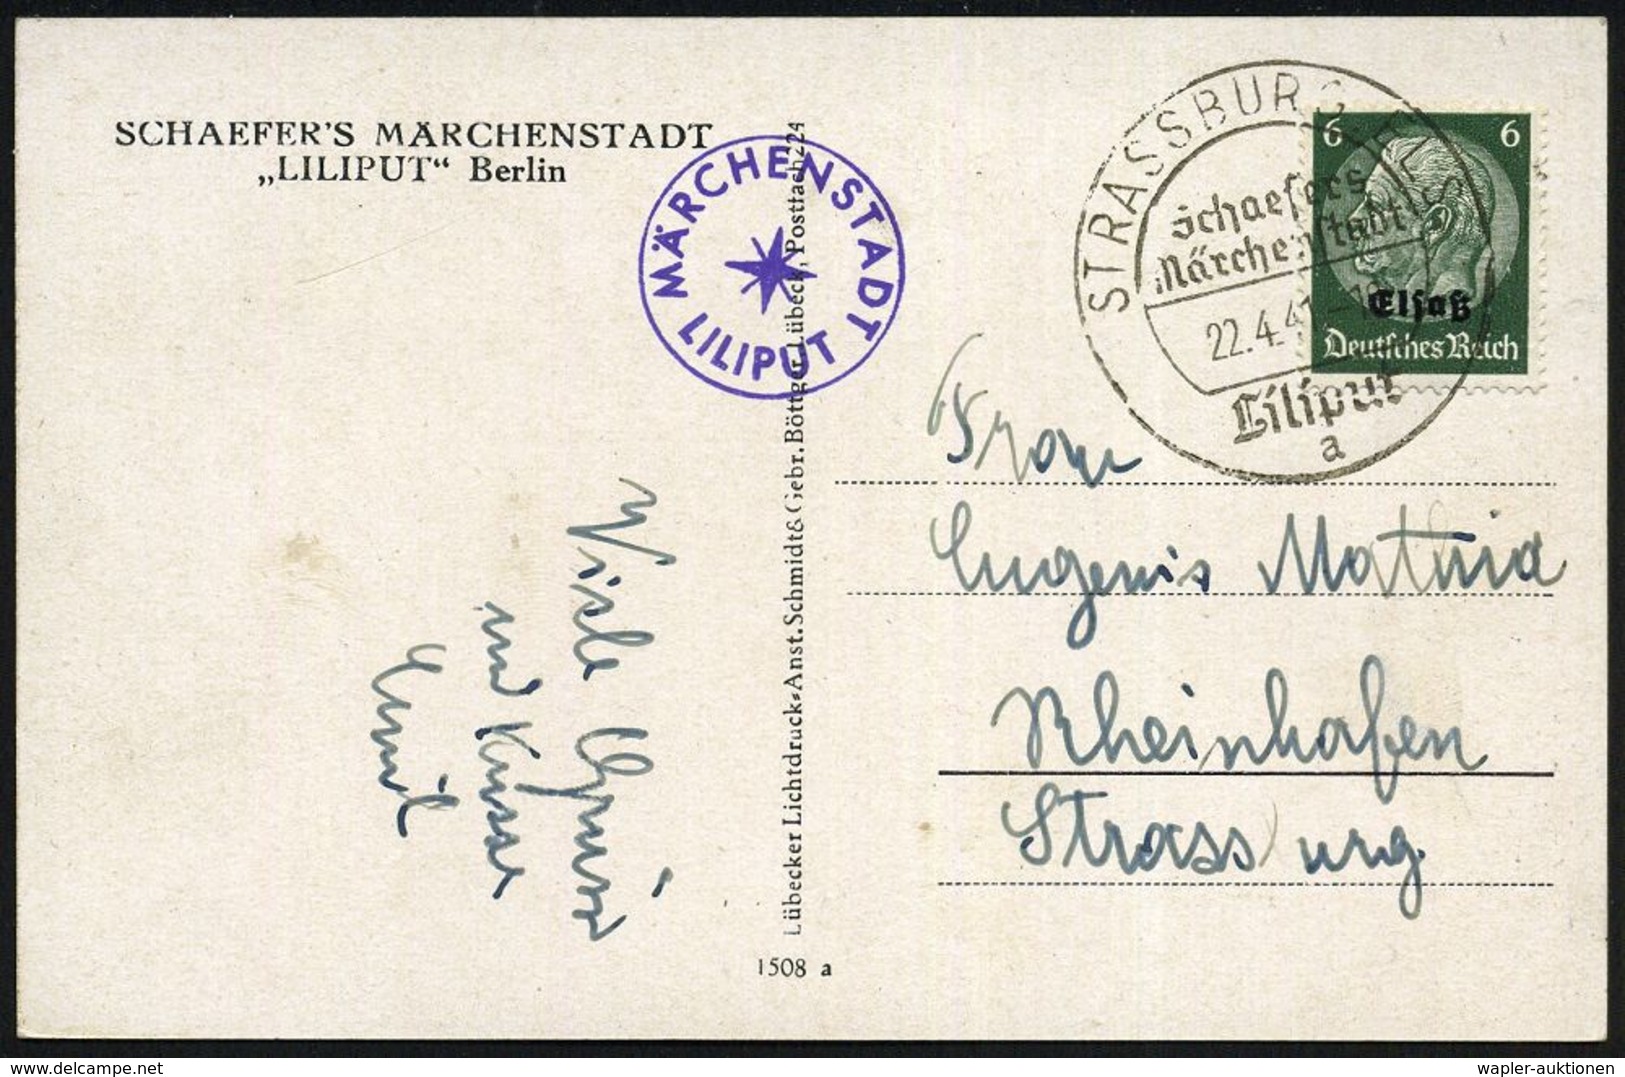 SCHAEFER'S MÄRCHENSTADT
„LILIPUT“ Berlin
MÄRCHENSTADT
LILIPUT
STRASSBURG ELS
Schaefers
Märchenstadt
22.4.41
Liliput
a
6 6
Elsaß
Deutsches Reich
Lübecker Lichtdruck-Anst. Schmidt & Gebr. Böttger, Lübeck, Postfach 224
1508 a
Viele Grüsse
und Küsse
Emil
Frau
Rheinhafen
Strassburg.
www.delcampe.net
wapler-auktionen